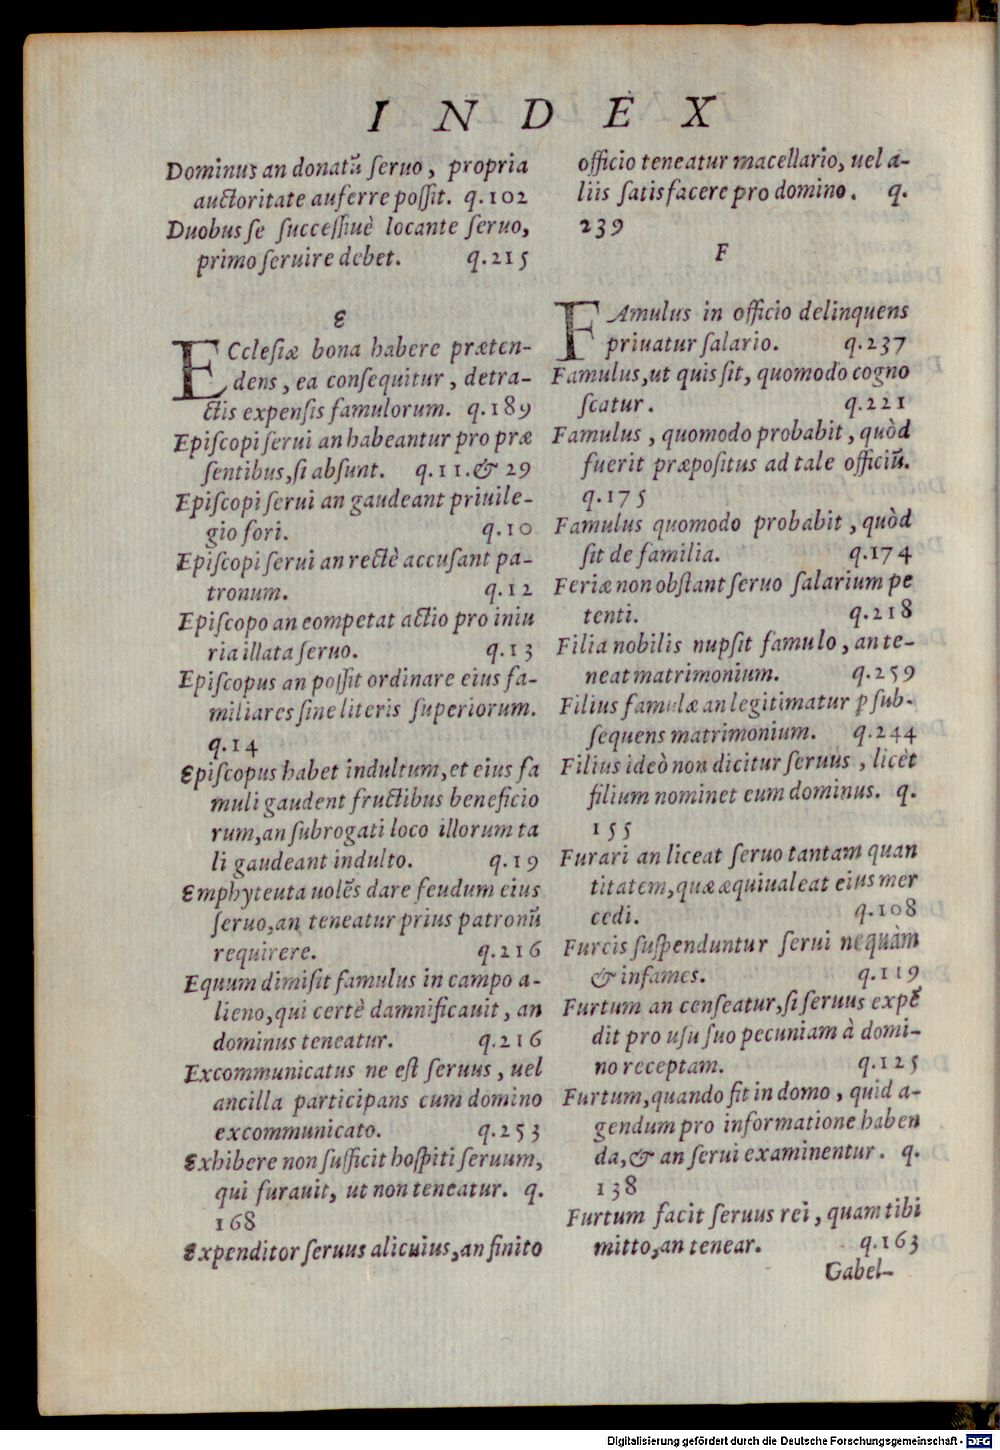 INDEX
Dominus an donatū ſeruo, propria
auctoritate auferre poſſit. q.102
Duobus ſe ſucceſſiuè locante ſeruo,
primo ſeruire debet. q.215
E
ECcleſiæ bona habere præten-
dens, ea conſequitur, detra-
ctis expenſis famulorum. q.189
Epiſcopi ſerui an habeantur pro præ
ſentibus, ſi abſunt. q.11.& 29
Epiſcopi ſerui an gaudeant priuile-
gio fori. q.10
Epiſcopi ſerui an rectè accuſant pa-
tronum. q.12
Epiſcopo an competat actio pro iniu
ria illata ſeruo. q.13
Epiſcopus an poſſit ordinare eius fa-
miliares ſine literis ſuperiorum.
q.14
Epiſcopus habet indultum, et eius fa
muli gaudent fructibus beneficio
rum, an ſubrogati loco illorum ta
li gaudeant indulto. q.19
Emphyteuta uolēs dare feudum eius
ſeruo, an teneatur prius patronū
requirere. q.216
Equum dimiſit famulus in campo a-
lieno, qui certè damnificauit, an
dominus teneatur. q.216
Excommunicatus ne eſt ſeruus, uel
ancilla participans cum domino
excommunicato. q.253
Exhibere non ſufficit hoſpiti ſeruum,
qui furauit, ut non teneatur. q.
168
Expenditor ſeruus alicuius, an finito
officio teneatur macellario, uel a-
liis ſatisfacere pro domino. q.
239
F
FAmulus in officio delinquens
priuatur ſalario. q.237
Famulus, ut quis ſit, quomodo cogno
ſcatur. q.221
Famulus, quomodo probabit, quòd
fuerit præpoſitus ad tale officiū.
q.175
Famulus quomodo probabit, quòd
ſit de familia. q.174
Feriæ non obſtant ſeruo ſalarium pe
tenti. q.218
Filia nobilis nupſit famulo, an te-
neat matrimonium. q.259
Filius famulæ an legitimatur ꝑ ſub-
ſequens matrimonium. q.244
Filius ideò non dicitur ſeruus, licèt
filium nominet eum dominus. q.
155
Furari an liceat ſeruo tantam quan
titatem, quæ æquiualeat eius mer
cedi. q.108
Furcis ſuſpenduntur ſerui nequàm
& infames. q.119
Furtum an cenſeatur, ſi ſeruus expē
dit pro uſu ſuo pecuniam à domi-
no receptam. q.125
Furtum, quando fit in domo, quid a-
gendum pro informatione haben
da, & an ſerui examinentur. q.
138
Furtum facit ſeruus rei, quam tibi
mitto, an tenear. q.163
Gabel-
Digitalisierung gefördert durch die Deutsche Forschungsgemeinschaft - DFG